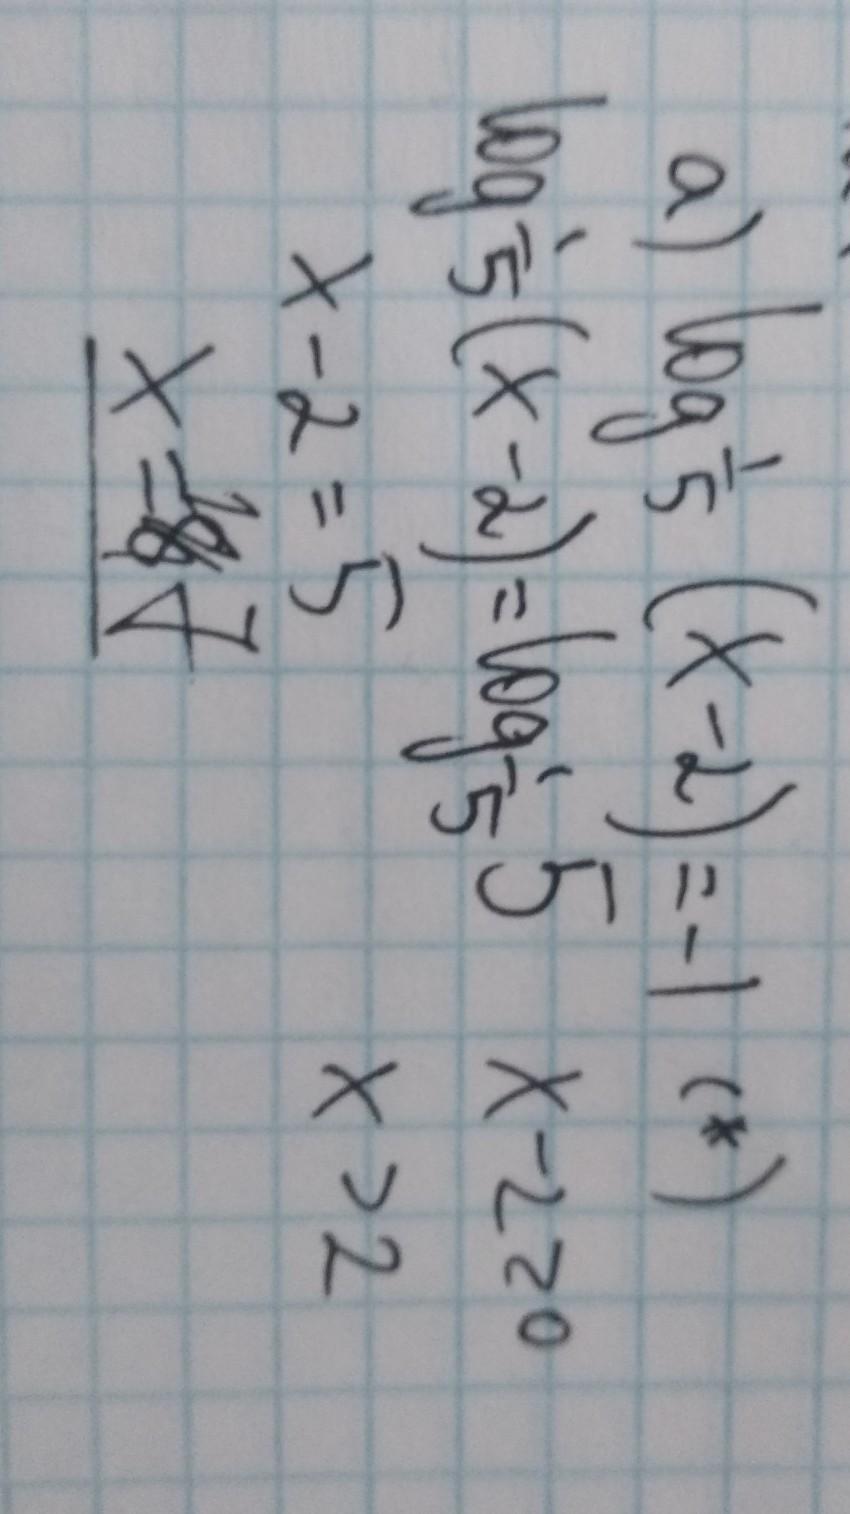 a) log 1/5 (x-2) = -1 (*)
log 1/5 (x-2) = log 1/5 5 x-2>0
x-2=5 x>2
x=7